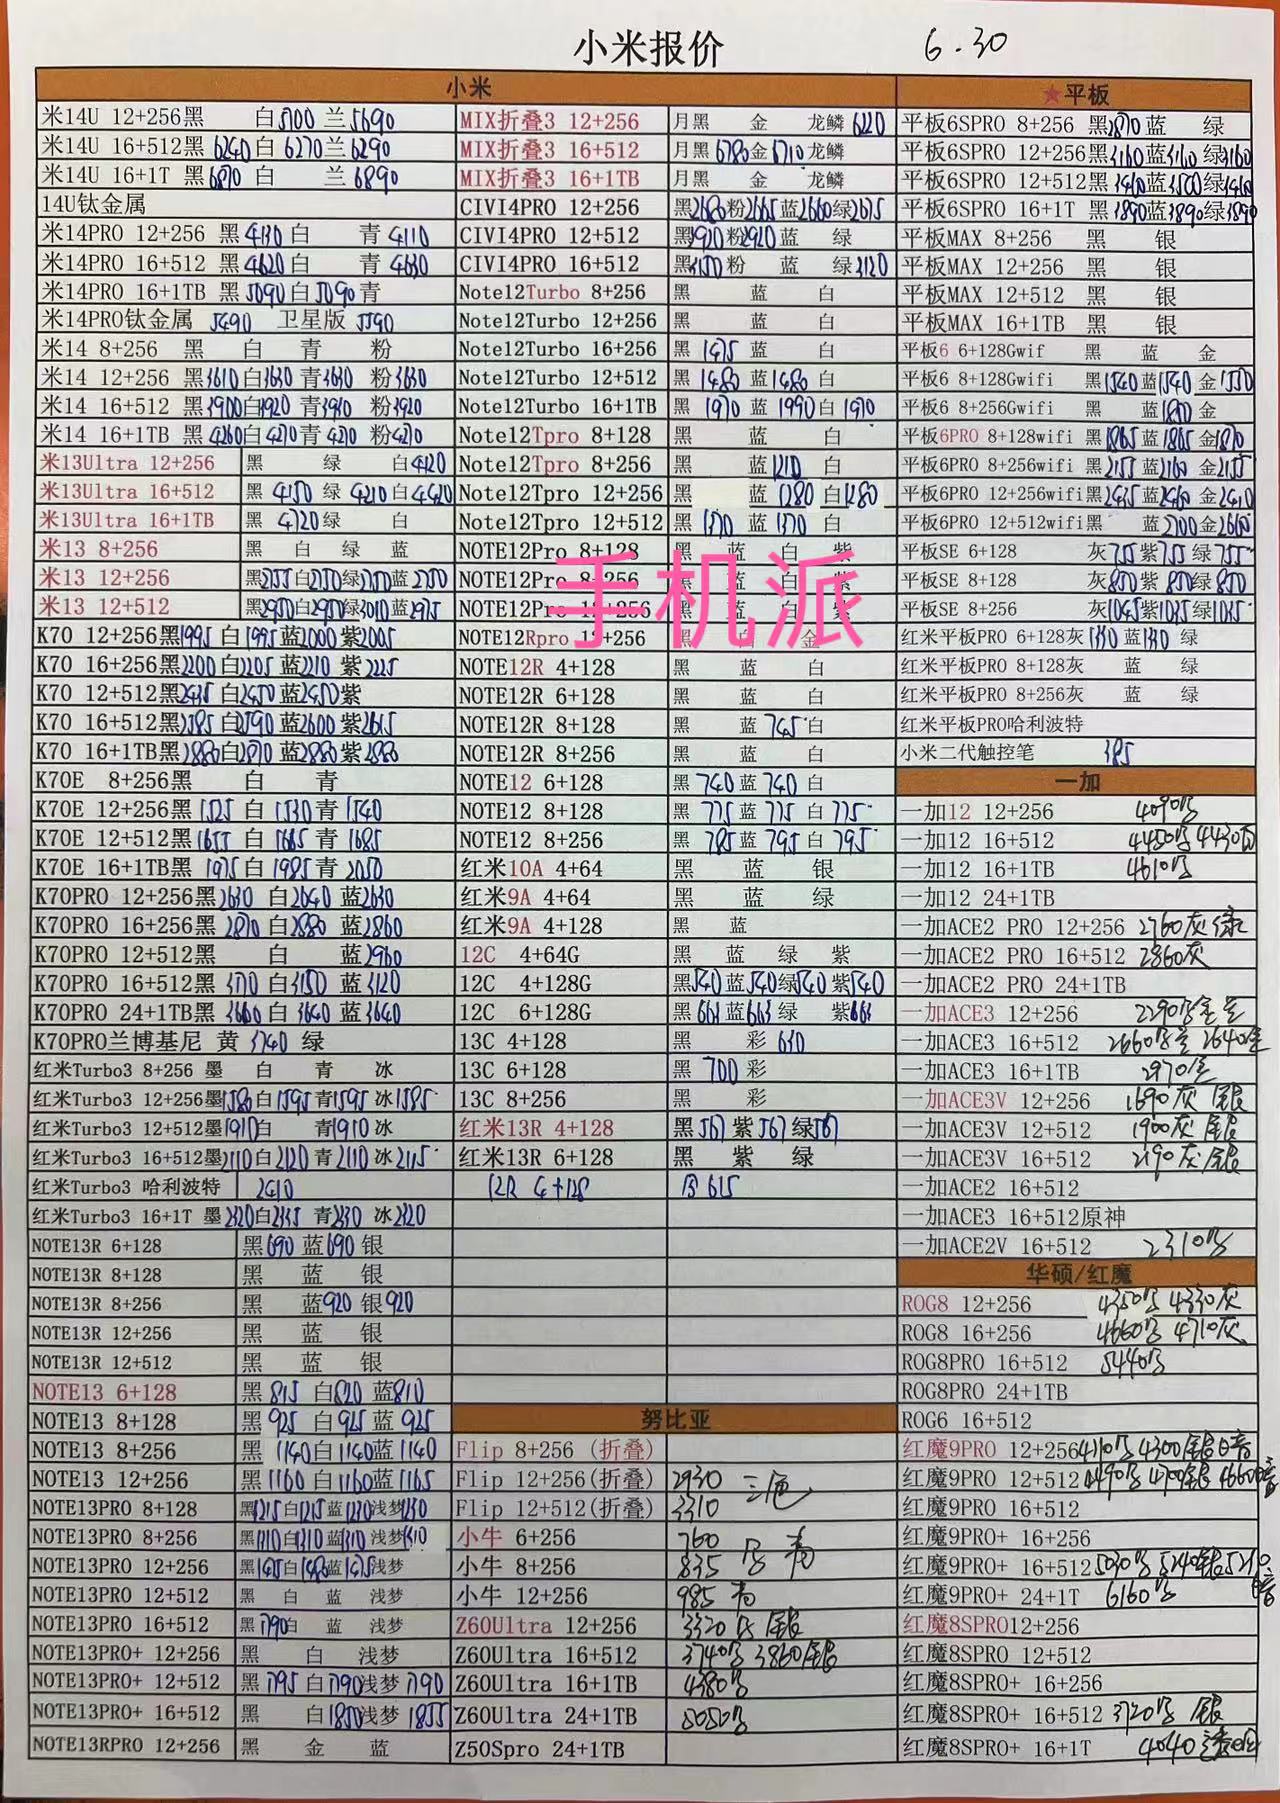 小米报价 6.30
小米
米14U 12+256黑 白5700 兰5690
米14U 16+512黑6240白6270兰6290
米14U 16+1T 黑6870 白 兰6890
14U钛金属
米14PRO 12+256 黑4130白 青4110
米14PRO 16+512 黑4620白 青4630
米14PRO 16+1TB 黑5090白5090青
米14PRO钛金属 5490 卫星版 5590
米14 8+256 黑 白 青 粉
米14 12+256 黑3610白3630 青3630 粉3630
米14 16+512 黑3900白3920 青3910 粉3920
米14 16+1TB 黑4260白4270青4270 粉4270
米13Ultra 12+256 黑 绿 白4420
米13Ultra 16+512 黑 4150 绿 4210白4420
米13Ultra 16+1TB 黑 4720绿 白
米13 8+256 黑 白 绿 蓝
米13 12+256 黑2755白2750绿2750蓝2750
米13 12+512 黑2950白2950绿3010蓝2975
K70 12+256黑1995 白1995蓝2000紫2005
K70 16+256黑2200白2205 蓝2210 紫2225
K70 12+512黑2435 白2450蓝2450紫
K70 16+512黑2585白2590蓝2600紫2615
K70 16+1TB黑2880白2870 蓝2880紫2880
K70E 8+256黑 白 青
K70E 12+256黑 1525 白 1530青 1540
K70E 12+512黑1655 白 1665青 1685
K70E 16+1TB黑 1975 白1985青 2050
K70PRO 12+256黑2630 白2640 蓝2630
K70PRO 16+256黑 2870 白2880 蓝2860
K70PRO 12+512黑 白 蓝2960
K70PRO 16+512黑 3170 白3150 蓝3120
K70PRO 24+1TB黑 3660白 3640 蓝3640
K70PRO兰博基尼 黄 3740 绿
红米Turbo3 8+256 墨 白 青 冰
红米Turbo3 12+256墨1580白1595青1595冰1585
红米Turbo3 12+512墨1910白 青1910冰
红米Turbo3 16+512墨2110白2120青2110冰2115
红米Turbo3 哈利波特 2410
红米Turbo3 16+1T 墨2320白2335 青2330 冰2320
NOTE13R 6+128 黑690 蓝690 银
NOTE13R 8+128 黑 蓝 银
NOTE13R 8+256 黑 蓝920 银920
NOTE13R 12+256 黑 蓝 银
NOTE13R 12+512 黑 蓝 银
NOTE13 6+128 黑 815 白820 蓝810
NOTE13 8+128 黑 925 白925 蓝 925
NOTE13 8+256 黑 1140白1140蓝1140
NOTE13 12+256 黑1160 白1160蓝1165
NOTE13PRO 8+128 黑1215白1215蓝1230浅梦1230
NOTE13PRO 8+256 黑1310白1310蓝1310浅梦1310
NOTE13PRO 12+256 黑1465白1480蓝1475浅梦
NOTE13PRO 12+512 黑 白 蓝 浅梦
NOTE13PRO 16+512 黑1790白 蓝 浅梦
NOTE13PRO+ 12+256 黑 白 浅梦
NOTE13PRO+ 12+512 黑 1795 白1790浅梦1790
NOTE13PRO+ 16+512 黑 白1850浅梦1855
NOTE13RPRO 12+256 黑 金 蓝
MIX折叠3 12+256 月黑 金 龙鳞 6220
MIX折叠3 16+512 月黑 6780金6710龙鳞
MIX折叠3 16+1TB 月黑 金 龙鳞
CIVI4PRO 12+256 黑2680粉2665蓝2660绿2675
CIVI4PRO 12+512 黑2920粉2920蓝 绿
CIVI4PRO 16+512 黑3150粉 蓝 绿3120
Note12Turbo 8+256 黑 蓝 白
Note12Turbo 12+256 黑 蓝 白
Note12Turbo 16+256 黑 1475 蓝 白
Note12Turbo 12+512 黑 1480 蓝1480 白
Note12Turbo 16+1TB 黑 1970 蓝 1990白1970
Note12Tpro 8+128 黑 蓝 白
Note12Tpro 8+256 黑 蓝1210 白
Note12Tpro 12+256 黑 蓝 1280 白1280
Note12Tpro 12+512 黑 1370 蓝 1370 白
NOTE12Pro 8+128 黑 蓝 白 紫
NOTE12Pro 8+256 黑 蓝 白 紫
NOTE12Pro 12+256 黑 蓝 白 紫
手机派
NOTE12Rpro 12+256 黑 白 金
NOTE12R 4+128 黑 蓝 白
NOTE12R 6+128 黑 蓝 白
NOTE12R 8+128 黑 蓝 745白
NOTE12R 8+256 黑 蓝 白
NOTE12 6+128 黑 740 蓝 740 白
NOTE12 8+128 黑 775 蓝 775 白 775
NOTE12 8+256 黑 785 蓝 795 白 795
红米10A 4+64 黑 蓝 银
红米9A 4+64 黑 蓝 绿
红米9A 4+128 黑 蓝
12C 4+64G 黑 蓝 绿 紫
12C 4+128G 黑540蓝540绿540紫540
12C 6+128G 黑 663蓝663绿 紫663
13C 4+128 黑 彩 630
13C 6+128 黑 700 彩
13C 8+256 黑 彩
红米13R 4+128 黑 567 紫 567 绿567
红米13R 6+128 黑 紫 绿
12R 4+128 615
努比亚
Flip 8+256 (折叠)
Flip 12+256(折叠) 2930 三色
Flip 12+512(折叠) 3310
小牛 6+256 760
小牛 8+256 835 青
小牛 12+256 985 青
Z60Ultra 12+256 3320 银
Z60Ultra 16+512 3740 3860银
Z60Ultra 16+1TB 4380
Z60Ultra 24+1TB 5050
Z50Spro 24+1TB
★平板
平板6SPRO 8+256 黑2870蓝 绿
平板6SPRO 12+256黑3160蓝3160 绿3160
平板6SPRO 12+512黑3460蓝3500绿3460
平板6SPRO 16+1T 黑3890蓝3890绿3890
平板MAX 8+256 黑 银
平板MAX 12+256 黑 银
平板MAX 12+512 黑 银
平板MAX 16+1TB 黑 银
平板6 6+128Gwif 黑 蓝 金
平板6 8+128Gwifi 黑1540蓝1540 金1550
平板6 8+256Gwifi 黑 蓝1800金
平板6PRO 8+128wifi 黑1865 蓝1865 金1870
平板6PRO 8+256wifi 黑2155 蓝2160 金2155
平板6PRO 12+256wifi黑2435蓝2460 金2410
平板6PRO 12+512wifi黑 蓝2700金2660
平板SE 6+128 灰755紫755绿755
平板SE 8+128 灰850紫 850绿850
平板SE 8+256 灰1045紫1035绿1035
红米平板PRO 6+128灰 1330 蓝1330 绿
红米平板PRO 8+128灰 蓝 绿
红米平板PRO 8+256灰 蓝 绿
红米平板PRO哈利波特
小米二代触控笔 385
一加
一加12 12+256 4090
一加12 16+512 4450 4430白
一加12 16+1TB 4610
一加12 24+1TB
一加ACE2 PRO 12+256 2760灰绿
一加ACE2 PRO 16+512 2860灰
一加ACE2 PRO 24+1TB
一加ACE3 12+256 2290
一加ACE3 16+512 2660 2640金
一加ACE3 16+1TB 2970
一加ACE3V 12+256 1690灰 银
一加ACE3V 12+512 1900灰 银
一加ACE3V 16+512 2190灰 银
一加ACE2 16+512
一加ACE3 16+512原神
一加ACE2V 16+512 2310
华硕/红魔
ROG8 12+256 4350 4330灰
ROG8 16+256 4660 4710灰
ROG8PRO 16+512 5440
ROG8PRO 24+1TB
ROG6 16+512
红魔9PRO 12+256 4110 4300银
红魔9PRO 12+512 4490 4700银 4660
红魔9PRO 16+512
红魔9PRO+ 16+256
红魔9PRO+ 16+512 5030 5240银
红魔9PRO+ 24+1T 6160
红魔8SPRO12+256
红魔8SPRO 12+512
红魔8SPRO+ 16+256
红魔8SPRO+ 16+512 3720 银
红魔8SPRO+ 16+1T 4040